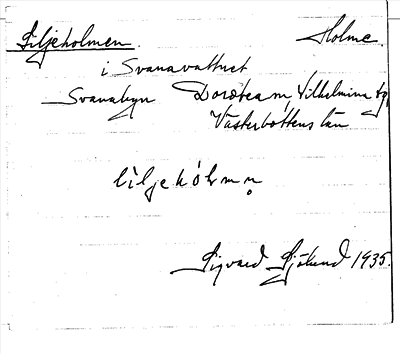 Liljeholmen. Holme.
i Svanavattnet
Svanabyn Dorotea m, Vilhelmina tg,
Västerbottens län
lìljehólmn̥
Sigvard Sjölund 1935.